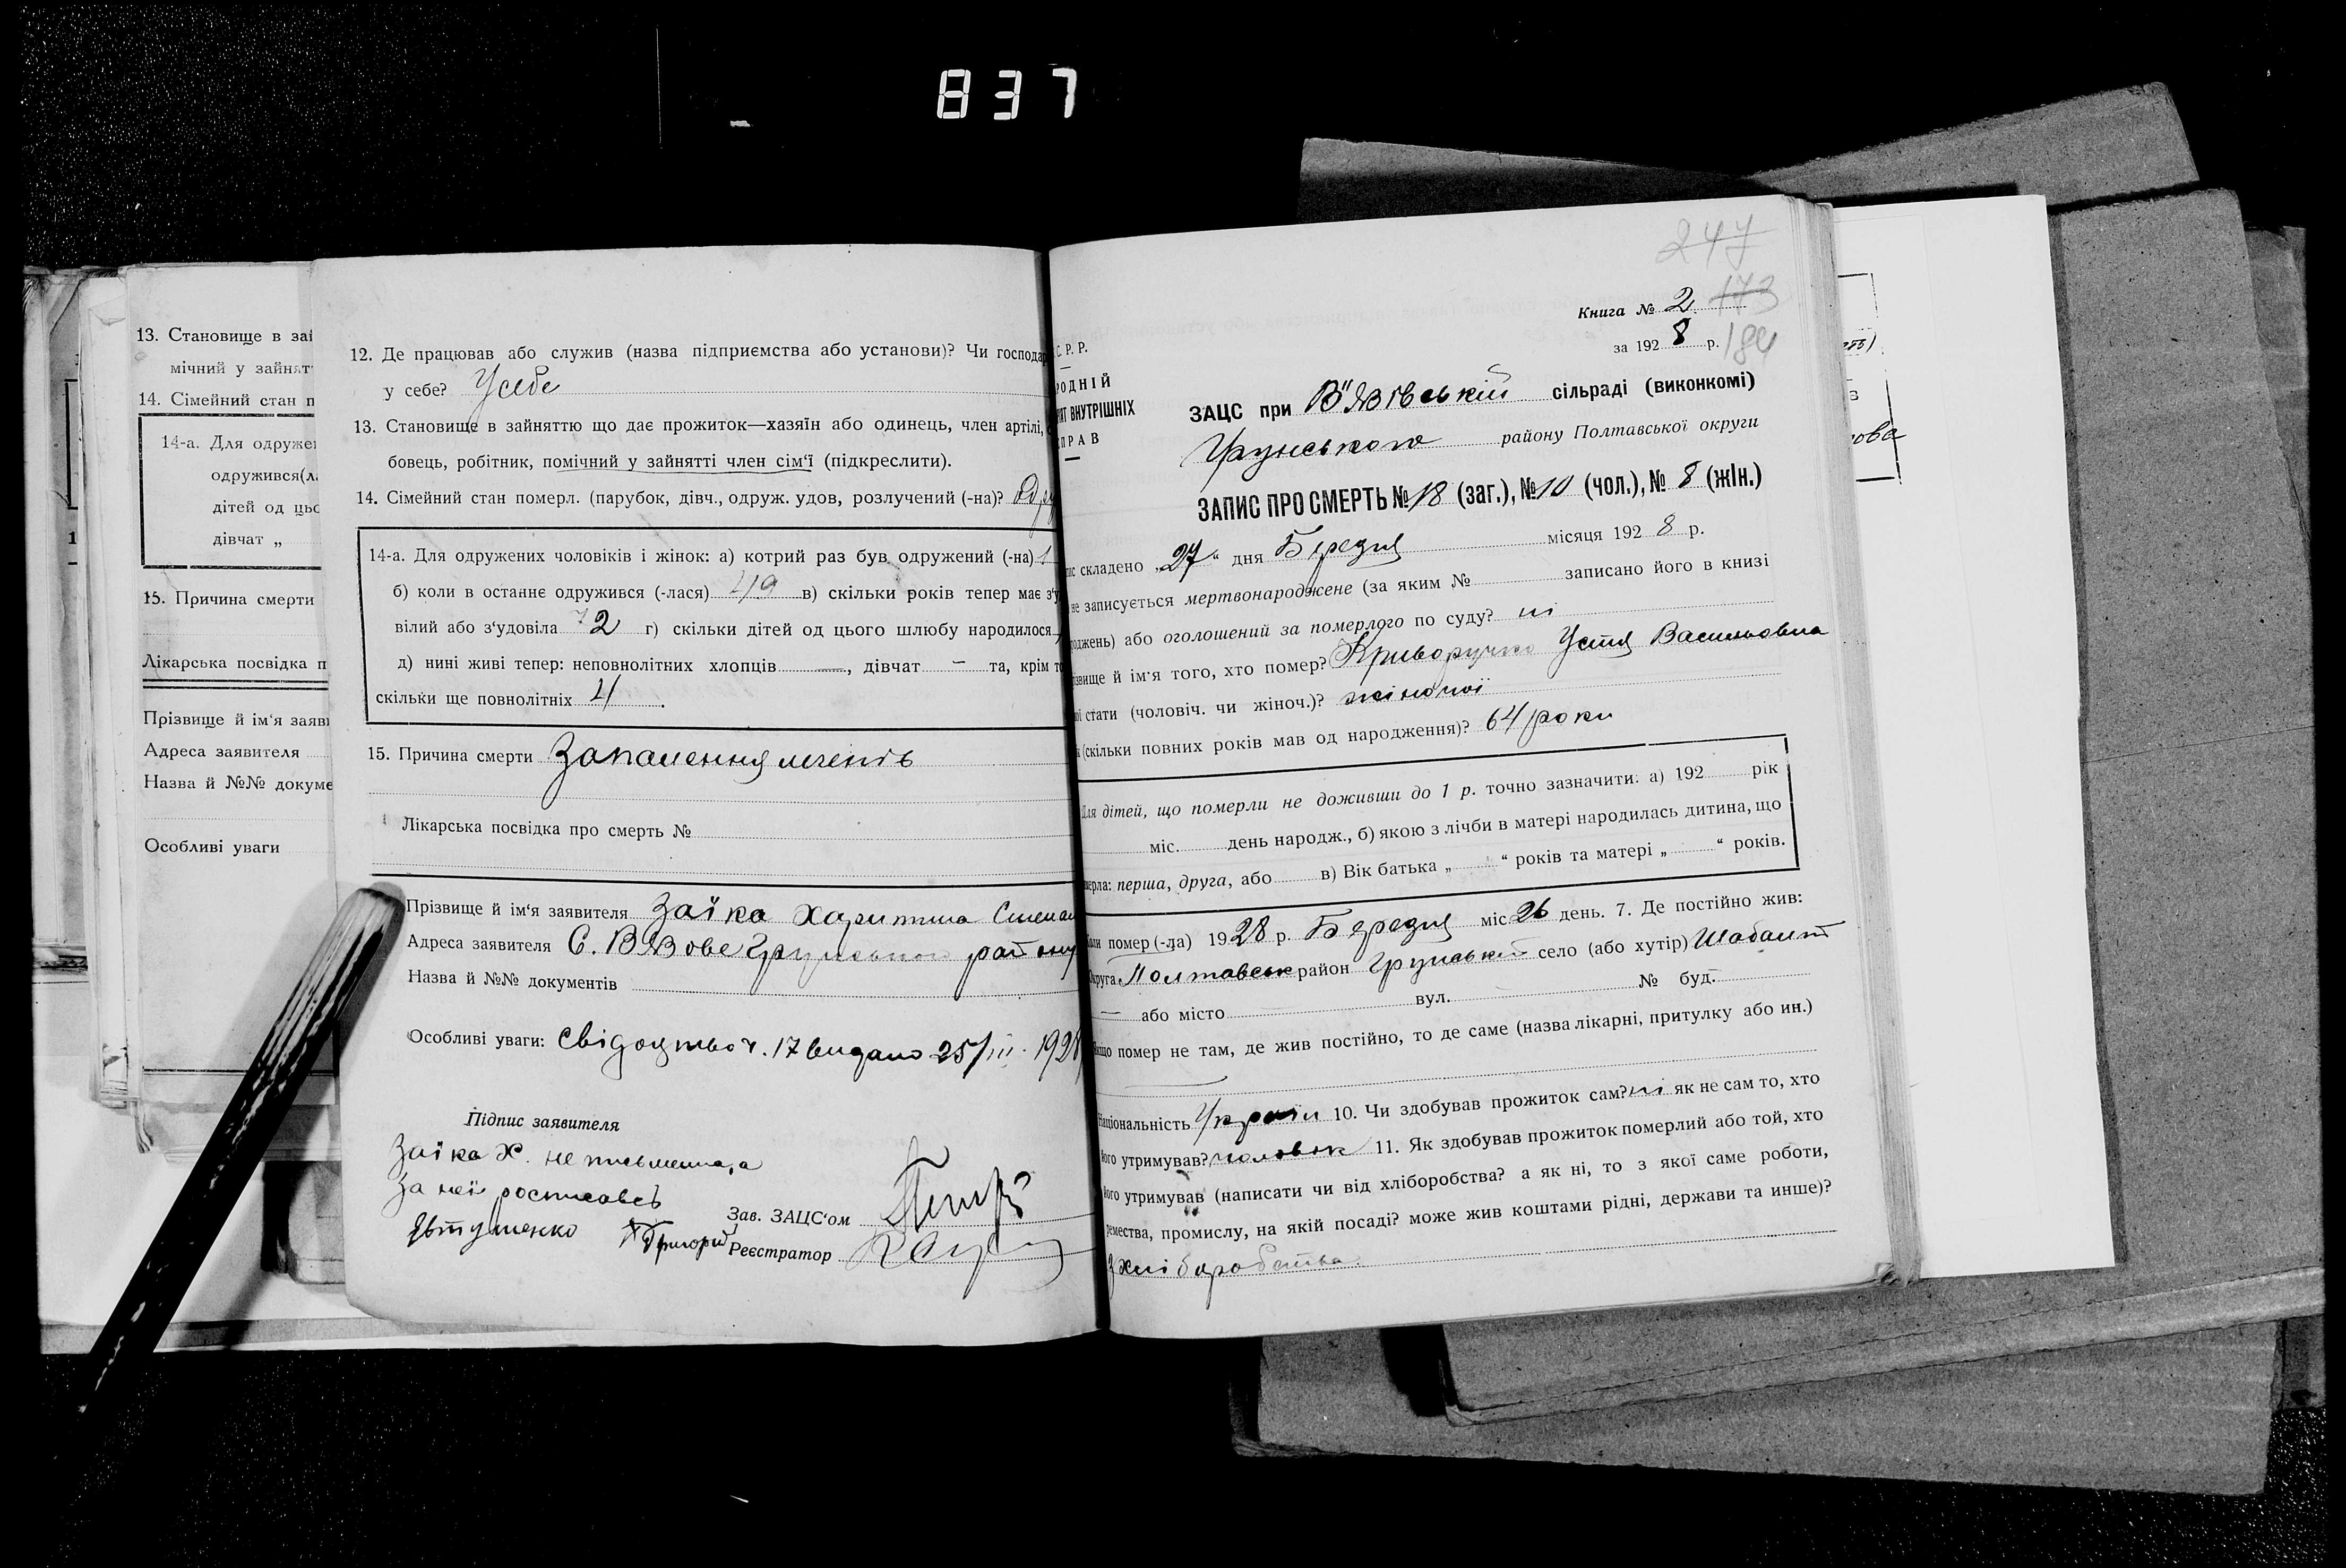 837
13. Становище в заі
мічний у зайнят
14. Сімейний стан п
14-а. Для одружен
одружився(ла
дітей од цьо
дівчат „
15. Причина смерти
Лікарська посвідка п
Прізвище й ім'я заяви
Адреса заявителя
Назва й №№ докуме
Особливі уваги
12. Де працював або служив (назва підприємства або установи)? Чи господар
у себе? У себе
13. Становище в зайняттю що дає прожиток—хазяїн або одинець, член артілі,
бовець, робітник, помічний у зайнятті член сім'ї (підкреслити).
14. Сімейний стан померл. (парубок, дівч., одруж. удов, розлучений (-на)? Одру
14-а. Для одружених чоловіків і жінок: а) котрий раз був одружений (-на) 1
б) коли в останнє одружився (-лася) в) скільки років тепер має з'у
вілий або з'удовіла 72 г) скільки дітей од цього шлюбу народилося
д) нині живі тепер: неповнолітних хлопців —, дівчат — та, крім то
скільки ще повнолітніх 4.
15. Причина смерти Запалення легенів
Лікарська посвідка про смерть №
Прізвище й ім'я заявителя Заїка Харитина Степан
Адреса заявителя С. В'язове Грунського району
Назва й №№ документів
Особливі уваги: Свідоцтво ч. 17 видано 25/III 1928
Підпис заявителя
Заїка Х. не письменна, а
за неї росписавсь
Явтушенко Григорій
Зав. ЗАЦС'ом
Реєстратор
247
Книга № 2 173
за 1928 р. 184
С. Р. Р.
РОДНІЙ
ЯТ ВНУТРІШНІХ
ПРАВ
ЗАЦС при В'язівській сільраді (виконкомі)
Грунського району Полтавської округи
ЗАПИС ПРО СМЕРТЬ № 18 (заг.), № 10 (чол.), № 8 (жін.)
ис складено „27" дня Березня місяця 1928 р.
не записується мертвонароджене (за яким № записано його в книзі
оджень) або оголошений за померлого по суду? ні
ізвище й ім'я того, хто помер? Криворучко Устя Васильовна
ої стати (чоловіч. чи жіноч.)? жіночої
к (скільки повних років мав од народження)? 64 роки
Для дітей, що померли не доживши до 1 р. точно зазначити: а) 192 рік
міс. день народж., б) якою з лічби в матері народилась дитина, що
мерла: перша, друга, або в) Вік батька „ " років та матері „ " років.
Коли помер (-ла) 1928 р. Березня міс 26 день. 7. Де постійно жив:
Округа Полтавськ район Грунський село (або хутір) Шабалт
— або місто вул. № буд.
Якщо помер не там, де жив постійно, то де саме (назва лікарні, притулку або ин.)
Національність Україн 10. Чи здобував прожиток сам? ні як не сам то, хто
його утримував? чоловік 11. Як здобував прожиток померлий або той, хто
його утримував (написати чи від хліборобства? а як ні, то з якої саме роботи,
ремества, промислу, на якій посаді? може жив коштами рідні, держави та инше)?
З хліборобства.